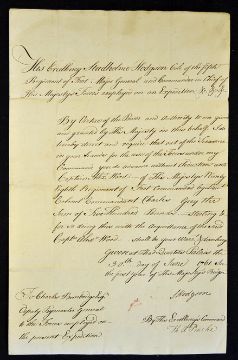 His Excellency Studholme Hodgson Esq. of the fifth
Regiment of Foot Major General and Commander in Chief of
His Majestys Forces employed on an Expedition &c. &c. &c.
By Virtue of the Power and Authority to me given
and granted by His Majesty in this behalf. I do
hereby direct and require that out of the Treasure
in your Hands for the use of the Forces under my
Command you do advance without Deduction unto
Captain of His Majestys Ninety
Eighth Regiment of Foot Commanded by
Colonel Commandant Charles Grey the
Sum of Five Hundred Sterling &
for so doing this with the Acquittance of the said
Capt. shall be your Warrant & Discharge
Given at Head Quarters
the 30th day of June 1761 In
the first Year of His Majestys Reign
Hodgson
To Charles Esq.
Deputy Paymaster General
to the Forces employed on
the present Expedition
By His Excellencys Command